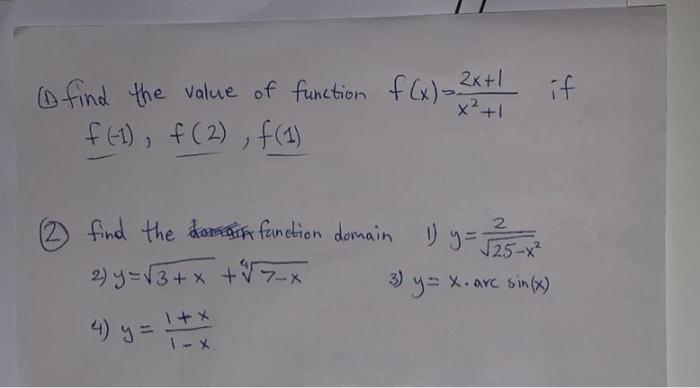 ① find the value of function f(x)=2x+1/x²+1 if
f(-1), f(2), f(1)
② find the function domain 1) y=2/√25-x²
2) y=√3+x +∜7-x 3) y= x.arc sin(x)
4) y= 1+x/1-x